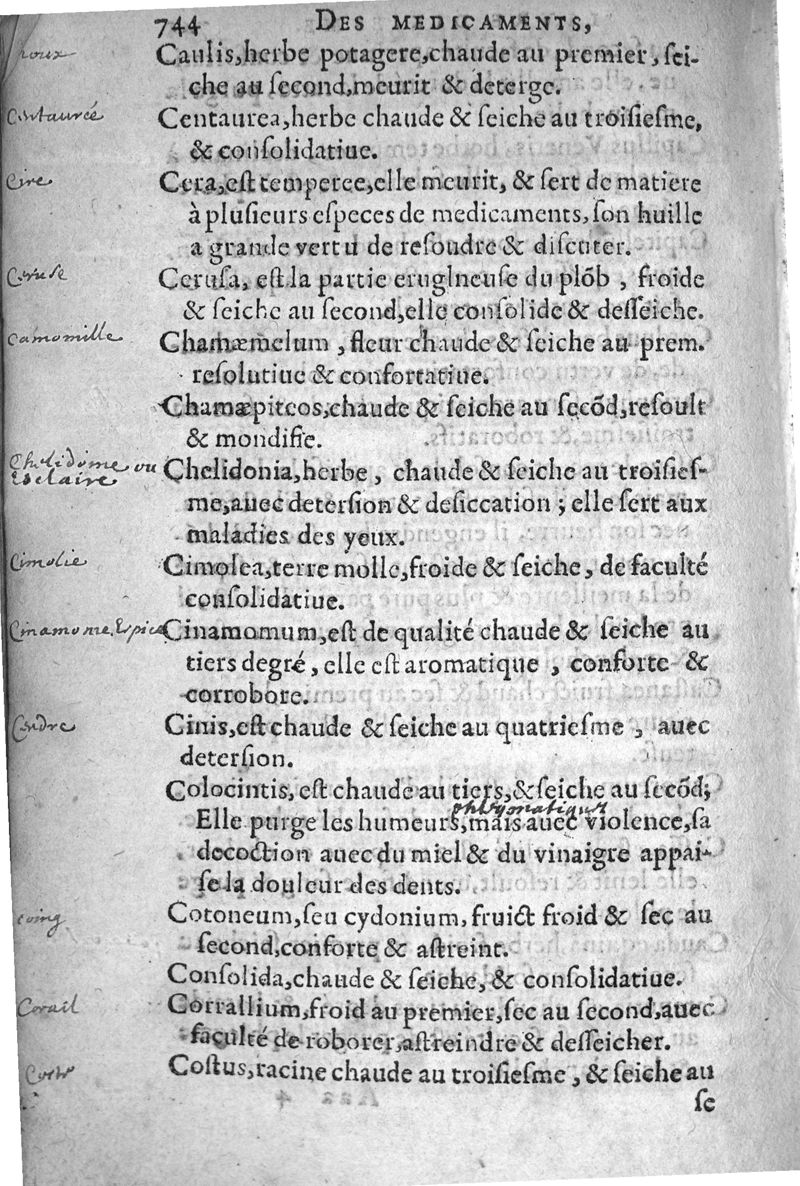 744 DES MEDICAMENTS,
Caulis, herbe potagere, chaude au premier, sei-
che au second, meurit & deterge.
Centaurée
Centaurea, herbe chaude & seiche au troisiesme,
& consolidatiue.
Cire
Cera, est temperee, elle meurit, & sert de matiere
à plusieurs especes de medicaments, son huille
a grande vertu de resoudre & discuter.
Ceruse
Cerusa, est la partie erugineuse du plõb, froide
& seiche au second, elle consolide & desseiche.
Camomille
Chamæmelum, fleur chaude & seiche au prem.
resolutiue & confortatiue.
Chamæpiteos, chaude & seiche au secõd, resoult
& mondifie.
Chelidoine ou
Esclaire
Chelidonia, herbe, chaude & seiche au troisies-
me, auec detersion & desiccation; elle sert aux
maladies des yeux.
Cimolie
Cimolea, terre molle, froide & seiche, de faculté
consolidatiue.
Cinamome
Cinamomum, est de qualité chaude & seiche au
tiers degré, elle est aromatique, conforte &
corrobore.
Cendre
Cinis, est chaude & seiche au quatriesme, auec
detersion.
Colocintis, est chaude au tiers, & seiche au secõd;
Elle purge les humeurs, mais auec violence, sa
decoction auec du miel & du vinaigre appai-
se la douleur des dents.
coing
Cotoneum, seu cydonium, fruict froid & sec au
second, conforte & astreint.
Consolida, chaude & seiche, & consolidatiue.
Corail
Corrallium, froid au premier, sec au second, auec
faculté de roborer, astreindre & desseicher.
Costus, racine chaude au troisiesme, & seiche au
se